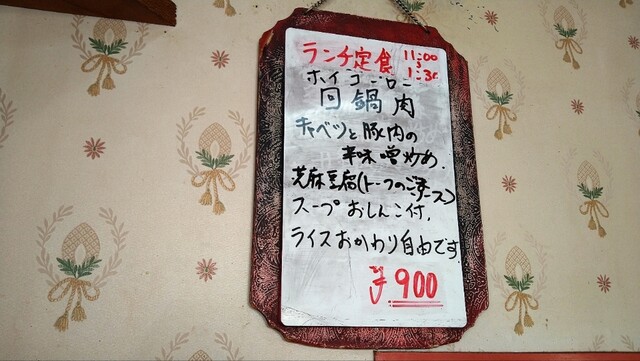 ランチ定食 11:00
〜
1:30
ホイコーロー
回鍋肉
キャベツと豚肉の
辛味噌炒め.
芝麻豆腐(トーフのごまソース)
スープ おしんこ付.
ライスおかわり自由です.
¥900